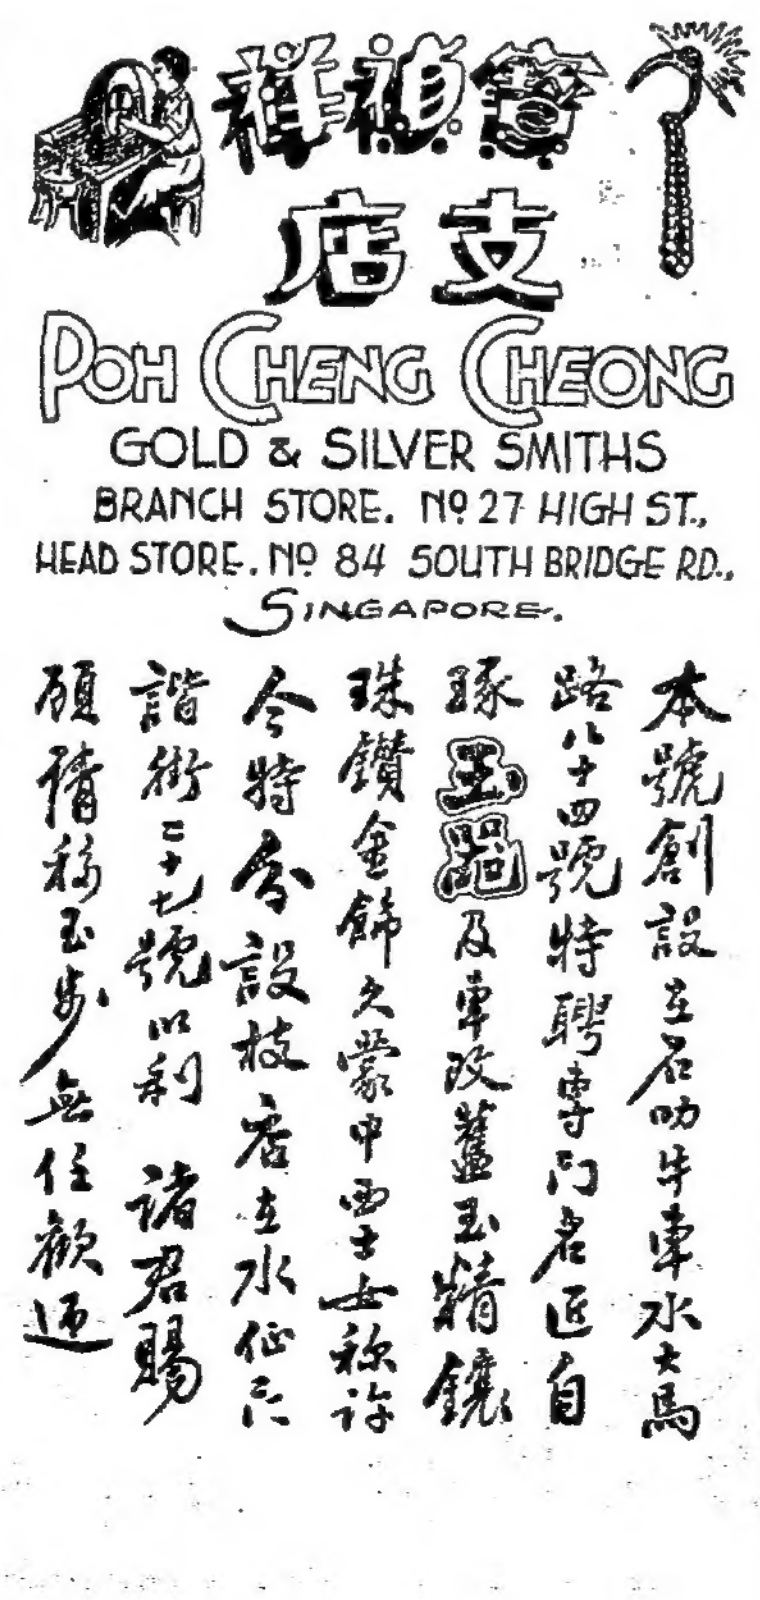 寶禎祥
支店
POH CHENG CHEONG
GOLD & SILVER SMITHS
BRANCH STORE. No 27 HIGH ST.,
HEAD STORE. No 84 SOUTH BRIDGE RD.,
SINGAPORE.
本號創設在石叻牛車水大馬
路八十四號特聘專門名匠自
琢玉器及車改舊玉精鑲
珠鑽金飾久蒙中西士女称許
今特分設枝店在水仙
諧街二十七號以利 諸君賜
顧請移玉步無任歡迎